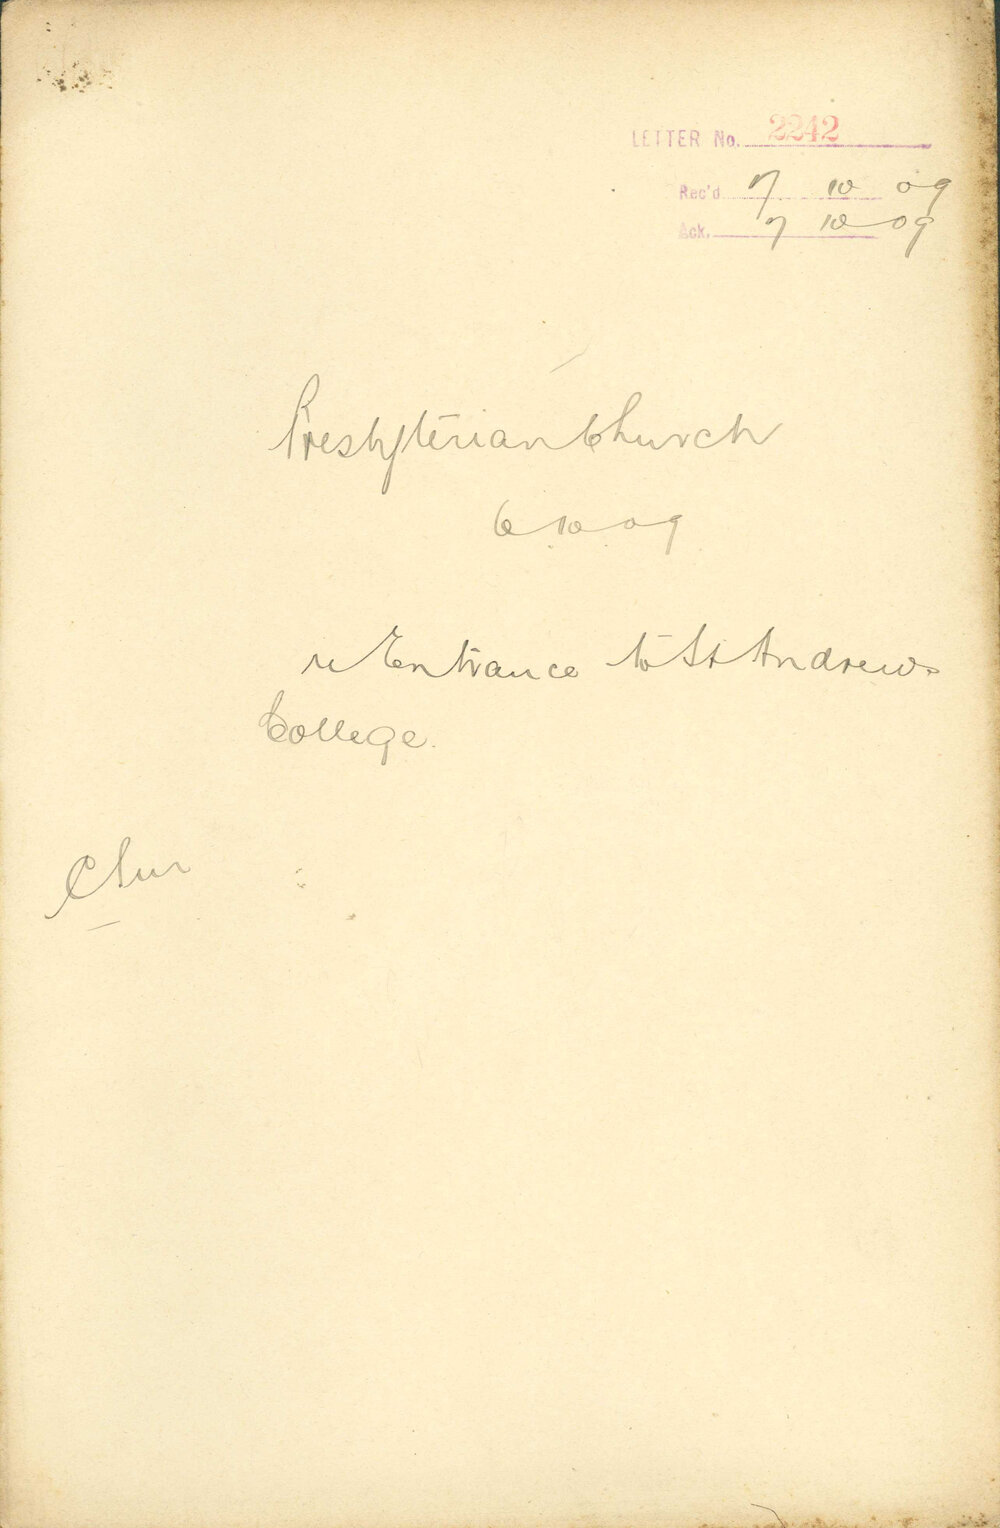 LETTER No. 2242
Rec'd 7 10 09
Ack. 7 10 09
Presbyterian Church
6 10 09
re Entrance to St Andrews
College.